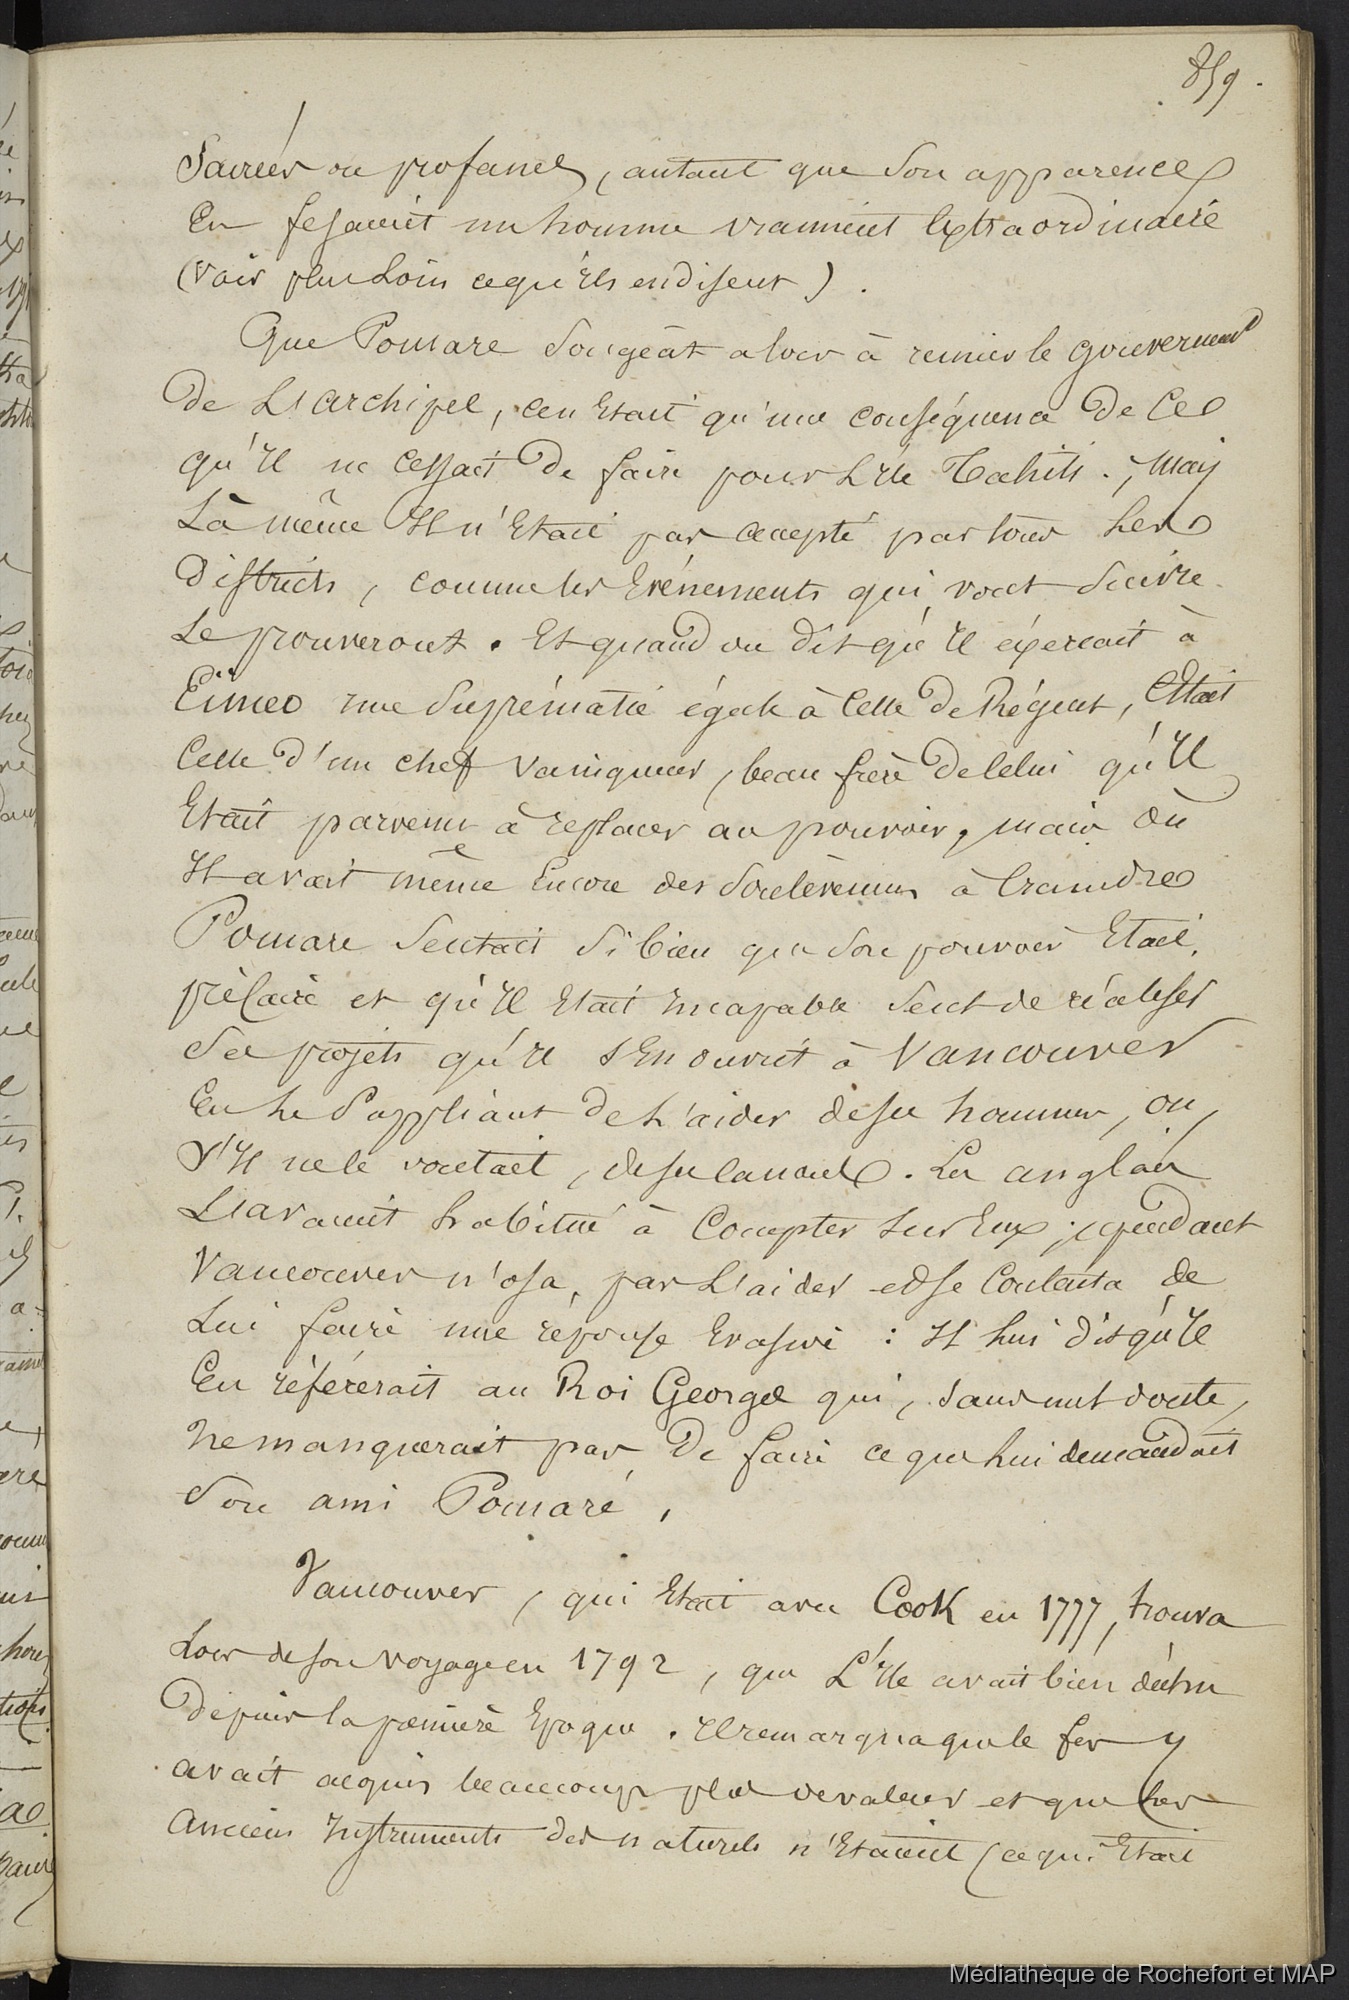 859.
Sacrées ou profanes, autant que Son apparence
En fesaient un homme vraiment Extraordinaire
(voir plus Loin ce qu'Ils en disent).
Que Pomare Songeât alors à réunir le gouvernement
de L'archipel, ce n'Etait qu'une conséquence de Ce
qu'Il ne Cessait De faire pour L'Ile Tahiti. ; Mais
Là même Il n'Etait pas accepté par tous Les
Districts, comme les Evénements qui vont Suivre
Le prouveront. Et quand on dit qu'Il éxercait à
Eimeo une Suprématie égale à Celle De Régent, C'Etait
Celle D'un chef vainqueur, beau frère De Celui qu'Il
Etait parvenu à replacer au pouvoir, mais où
Il avait même Encore des Soulèvemens à Craindre
Pomare Sentait Si bien que Son pouvoir Etait
précaire et qu'Il Etait Incapable Seul de réaliser
Ses projets qu'Il S'En ouvrit à Vancouver
En Le Suppliant De L'aider de Ses hommes, ou,
S'Il ne le voulait, de Ses canons. Les anglais
L'avaient habitué à Compter Sur Eux ; cependant
Vancouver n'osa pas L'aider et Se Contenta de
Lui faire une réponse Evasive : Il Lui dit qu'Il
En référerait au Roi George qui, Sans nul doute,
Ne manquerait pas De faire ce que Lui demandait
Son ami Pomaré,
Vancouver, qui Etait avec Cook en 1777, trouva
Lors de Son voyage en 1792, que L'Ile avait bien déchu
Depuis la première Epoque. Il remarqua que le fer y
avait acquis beaucoup plus de valeur et que Les
Anciens Instruments des naturels n'Etaient (ce qui Etait
Médiathèque de Rochefort et MAP